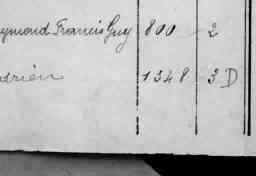 aymond Francis Guy 800 - 2
drien 1348 - 3 D